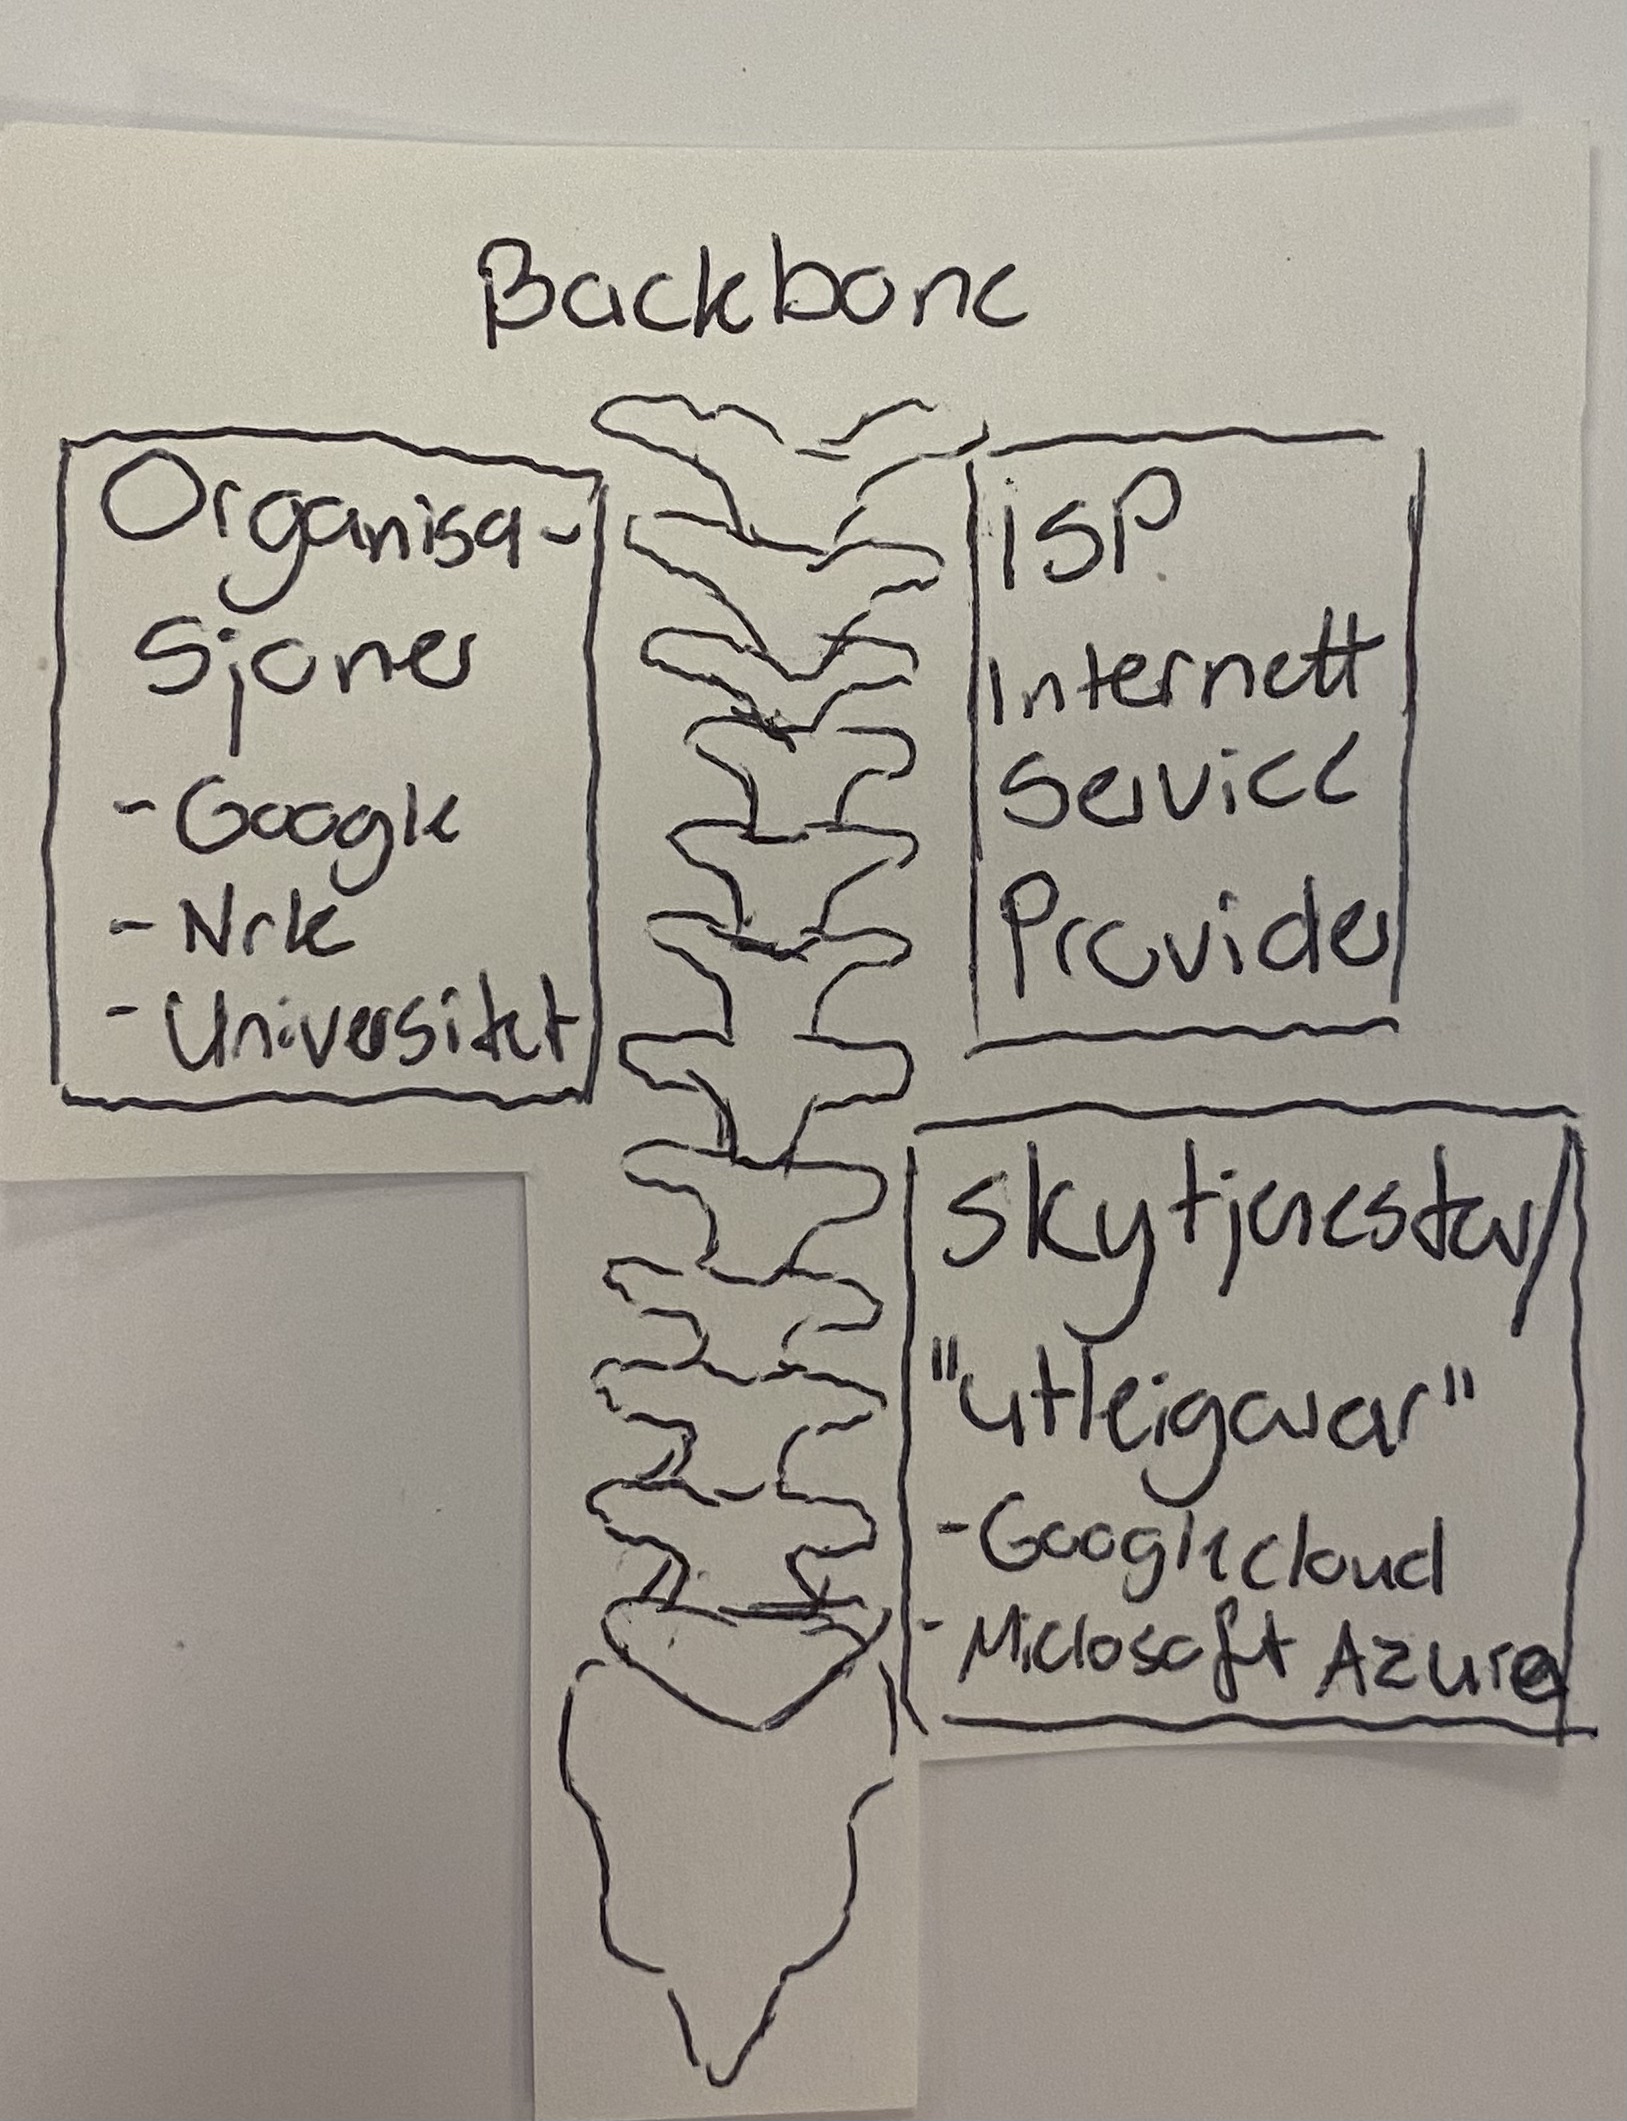 Backbone
Organisa-
sjoner
- Google
- Nrk
- Universitet
ISP
Internett
Service
Provider
Skytjenester/
"utleigarar"
- Google cloud
- Microsoft Azure